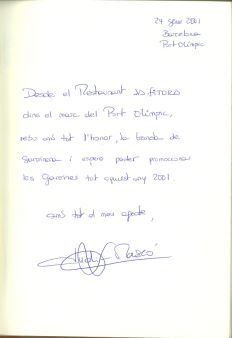 24 gener 2001
Barcelona
Port Olímpic
Desde el Restaurant
dins el marc del Port Olímpic,
rebo amb tot l'honor, la banda de
i espero poder promocionar
les Garoines tot aquest any 2001.
amb tot el meu afecte,